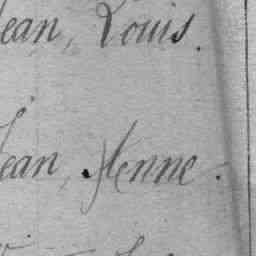 ean, Louis.
Jean, Henne.